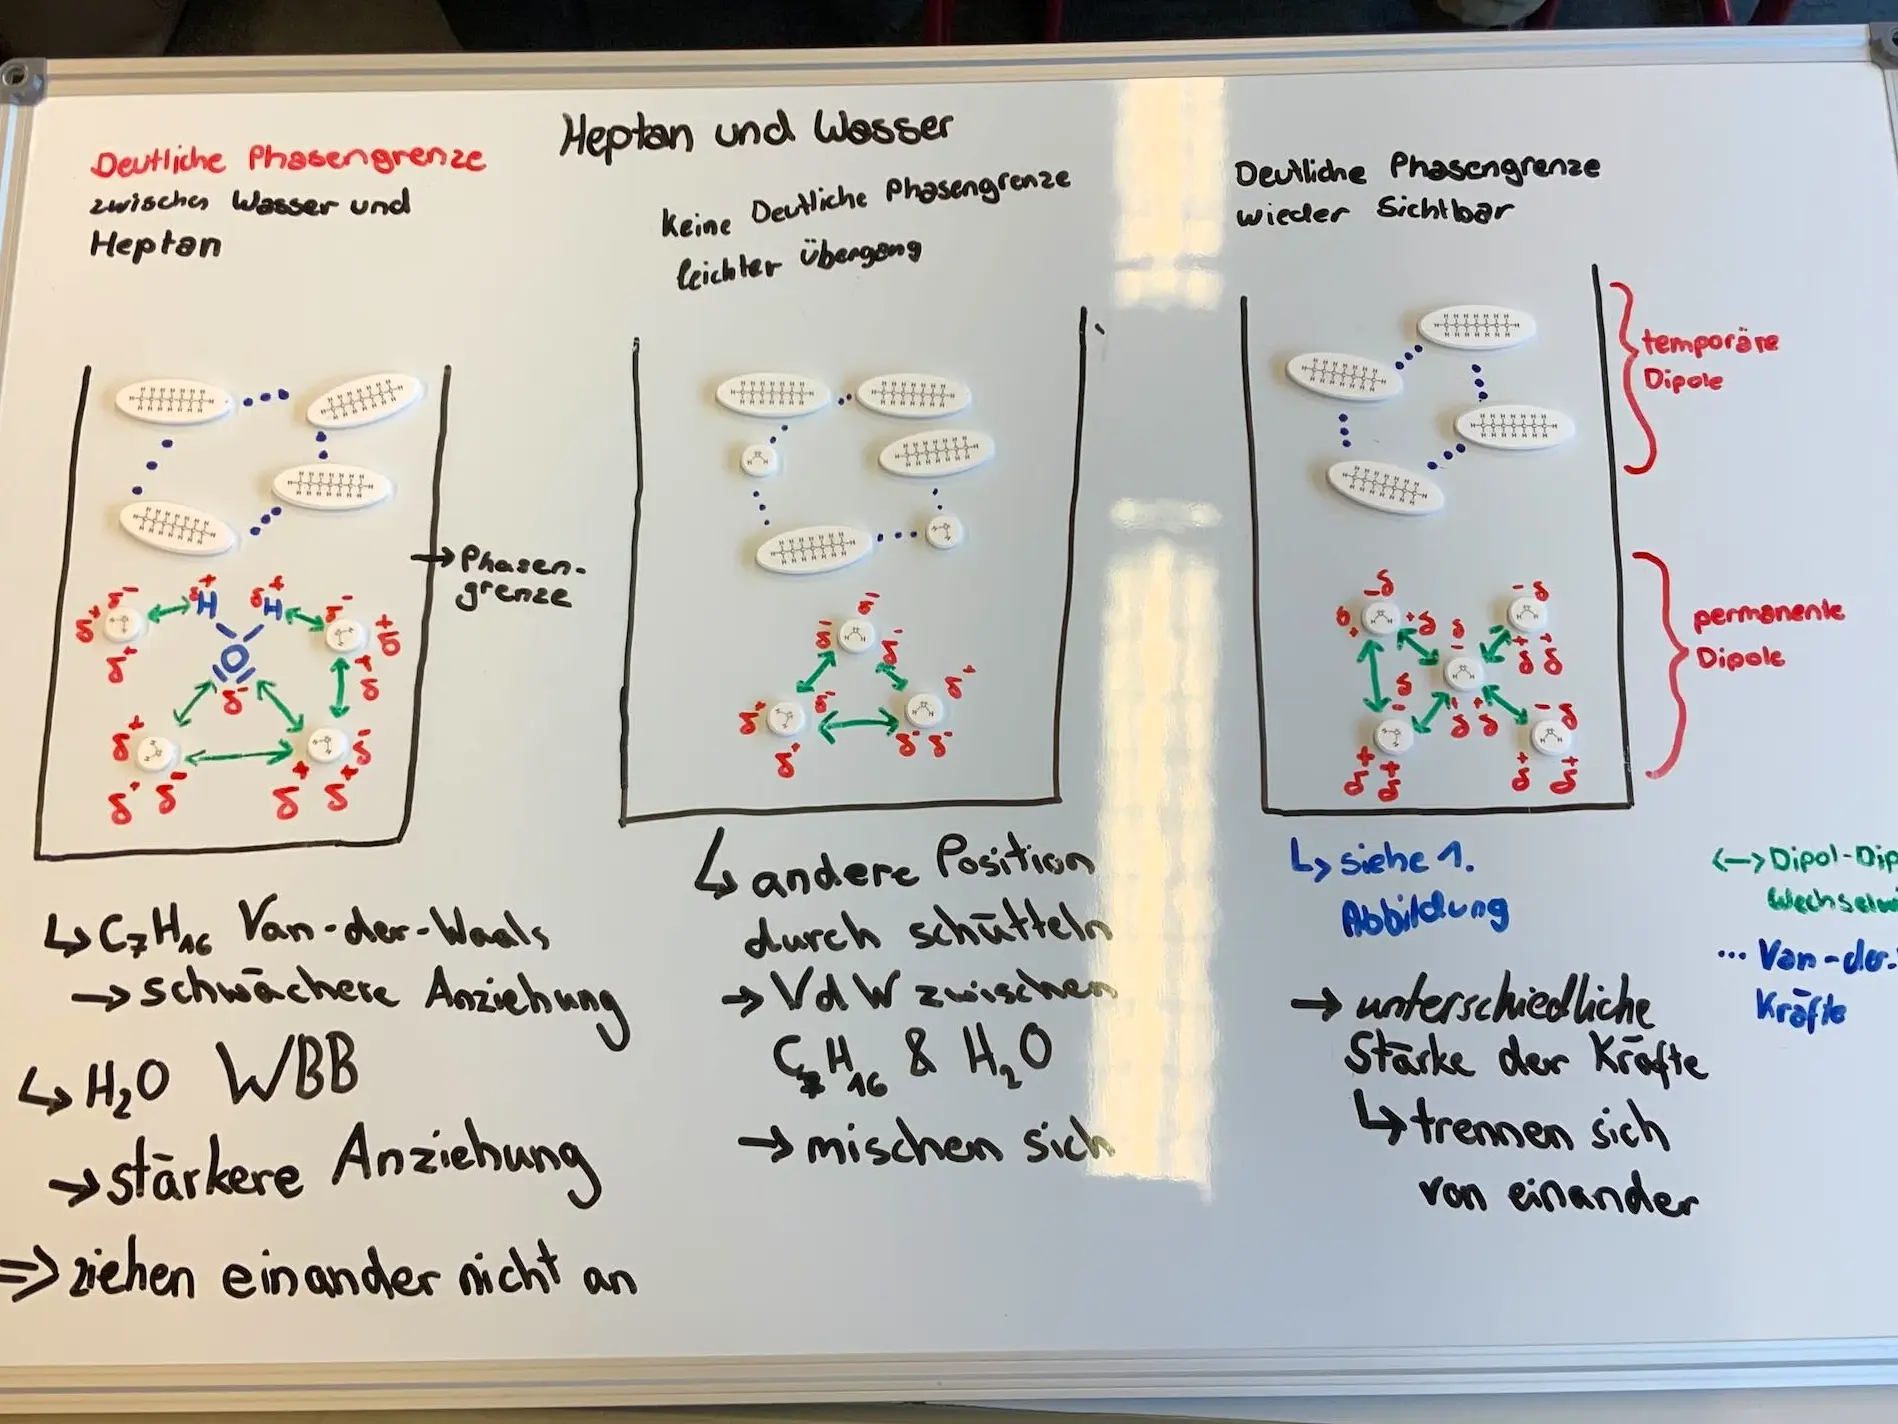 Heptan und Wasser
Deutliche Phasengrenze
zwischen Wasser und
Heptan
Keine Deutliche Phasengrenze
leichter Übergang
Deutliche Phasengrenze
wieder Sichtbar
temporäre
Dipole
→ Phasen-
grenze
permanente
Dipole
δ+ δ- δ+
δ+ H
δ+ H
O
δ-
δ- δ+ δ+
δ+ δ+ δ-
δ- δ+ δ+
δ-
δ- δ-
δ+ δ- δ+
δ+ δ- δ-
-δ δ+ +δ
-δ δ+ δ+
δ- δ+ δ+
δ- δ+ δ+
-δ δ+ δ+
↳ C7H16 Van-der-Waals
→ schwächere Anziehung
↳ H2O WBB
→ stärkere Anziehung
⇒ ziehen einander nicht an
↳ andere Position
durch schütteln
→ VdW zwischen
C7H16 & H2O
→ mischen sich
↳ siehe 1.
Abbildung
→ unterschiedliche
Stärke der Kräfte
↳ trennen sich
von einander
<--> Dipol-Dip
Wechselw
... Van-der-
Kräfte